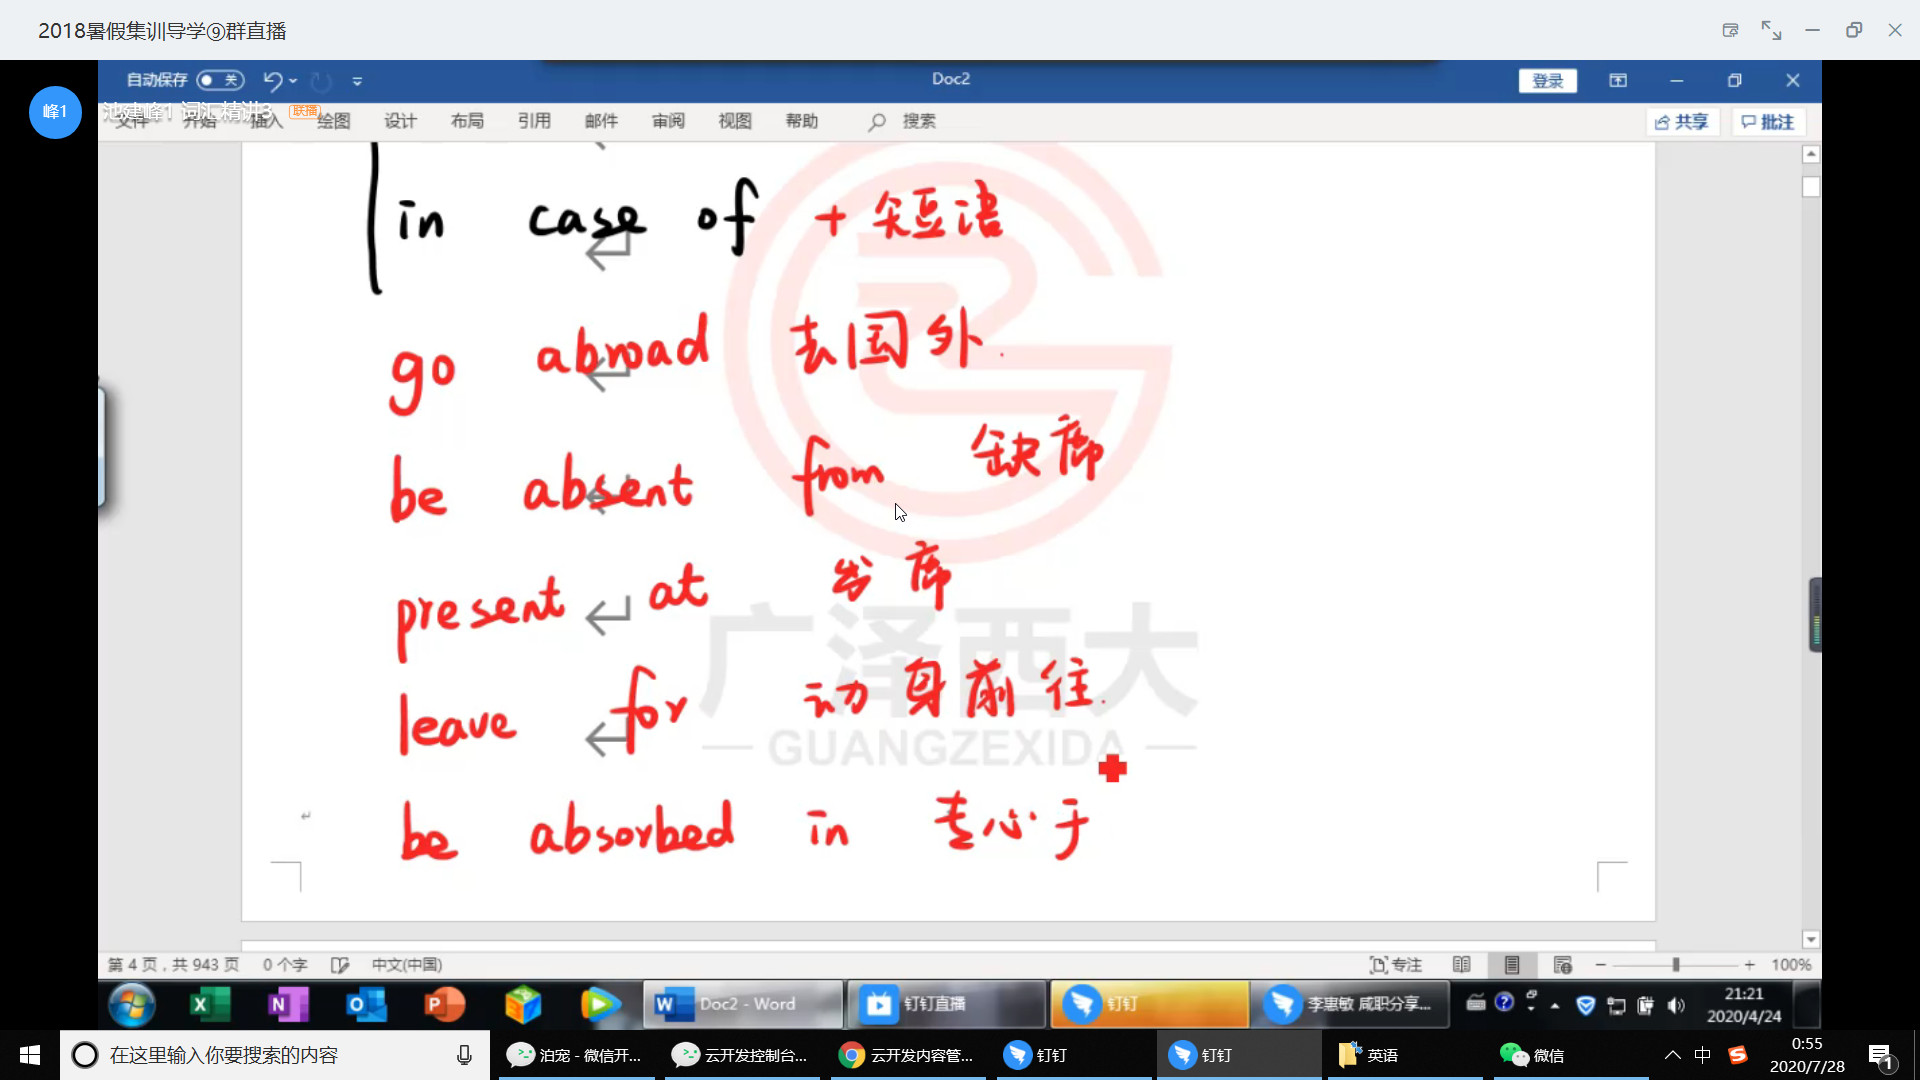 2018暑假集训导学⑨群直播
自动保存 关 Doc2 登录
峰1 池建峰1 词汇精讲3 联播
文件 开始 插入 绘图 设计 布局 引用 邮件 审阅 视图 帮助 搜索 共享 批注
in case of + 短语
go abroad 去国外.
be absent from 缺席
present at 出席
leave for 动身前往.
be absorbed in 专心于
广泽西大
— GUANGZEXIDA —
第 4 页，共 943 页 0 个字 中文(中国) 专注 100%
Doc2 - Word 钉钉直播 钉钉 李惠敏 咸职分享... 21:21
2020/4/24
在这里输入你要搜索的内容 泊宠 - 微信开... 云开发控制台... 云开发内容管... 钉钉 钉钉 英语 微信 中 0:55
2020/7/28 1